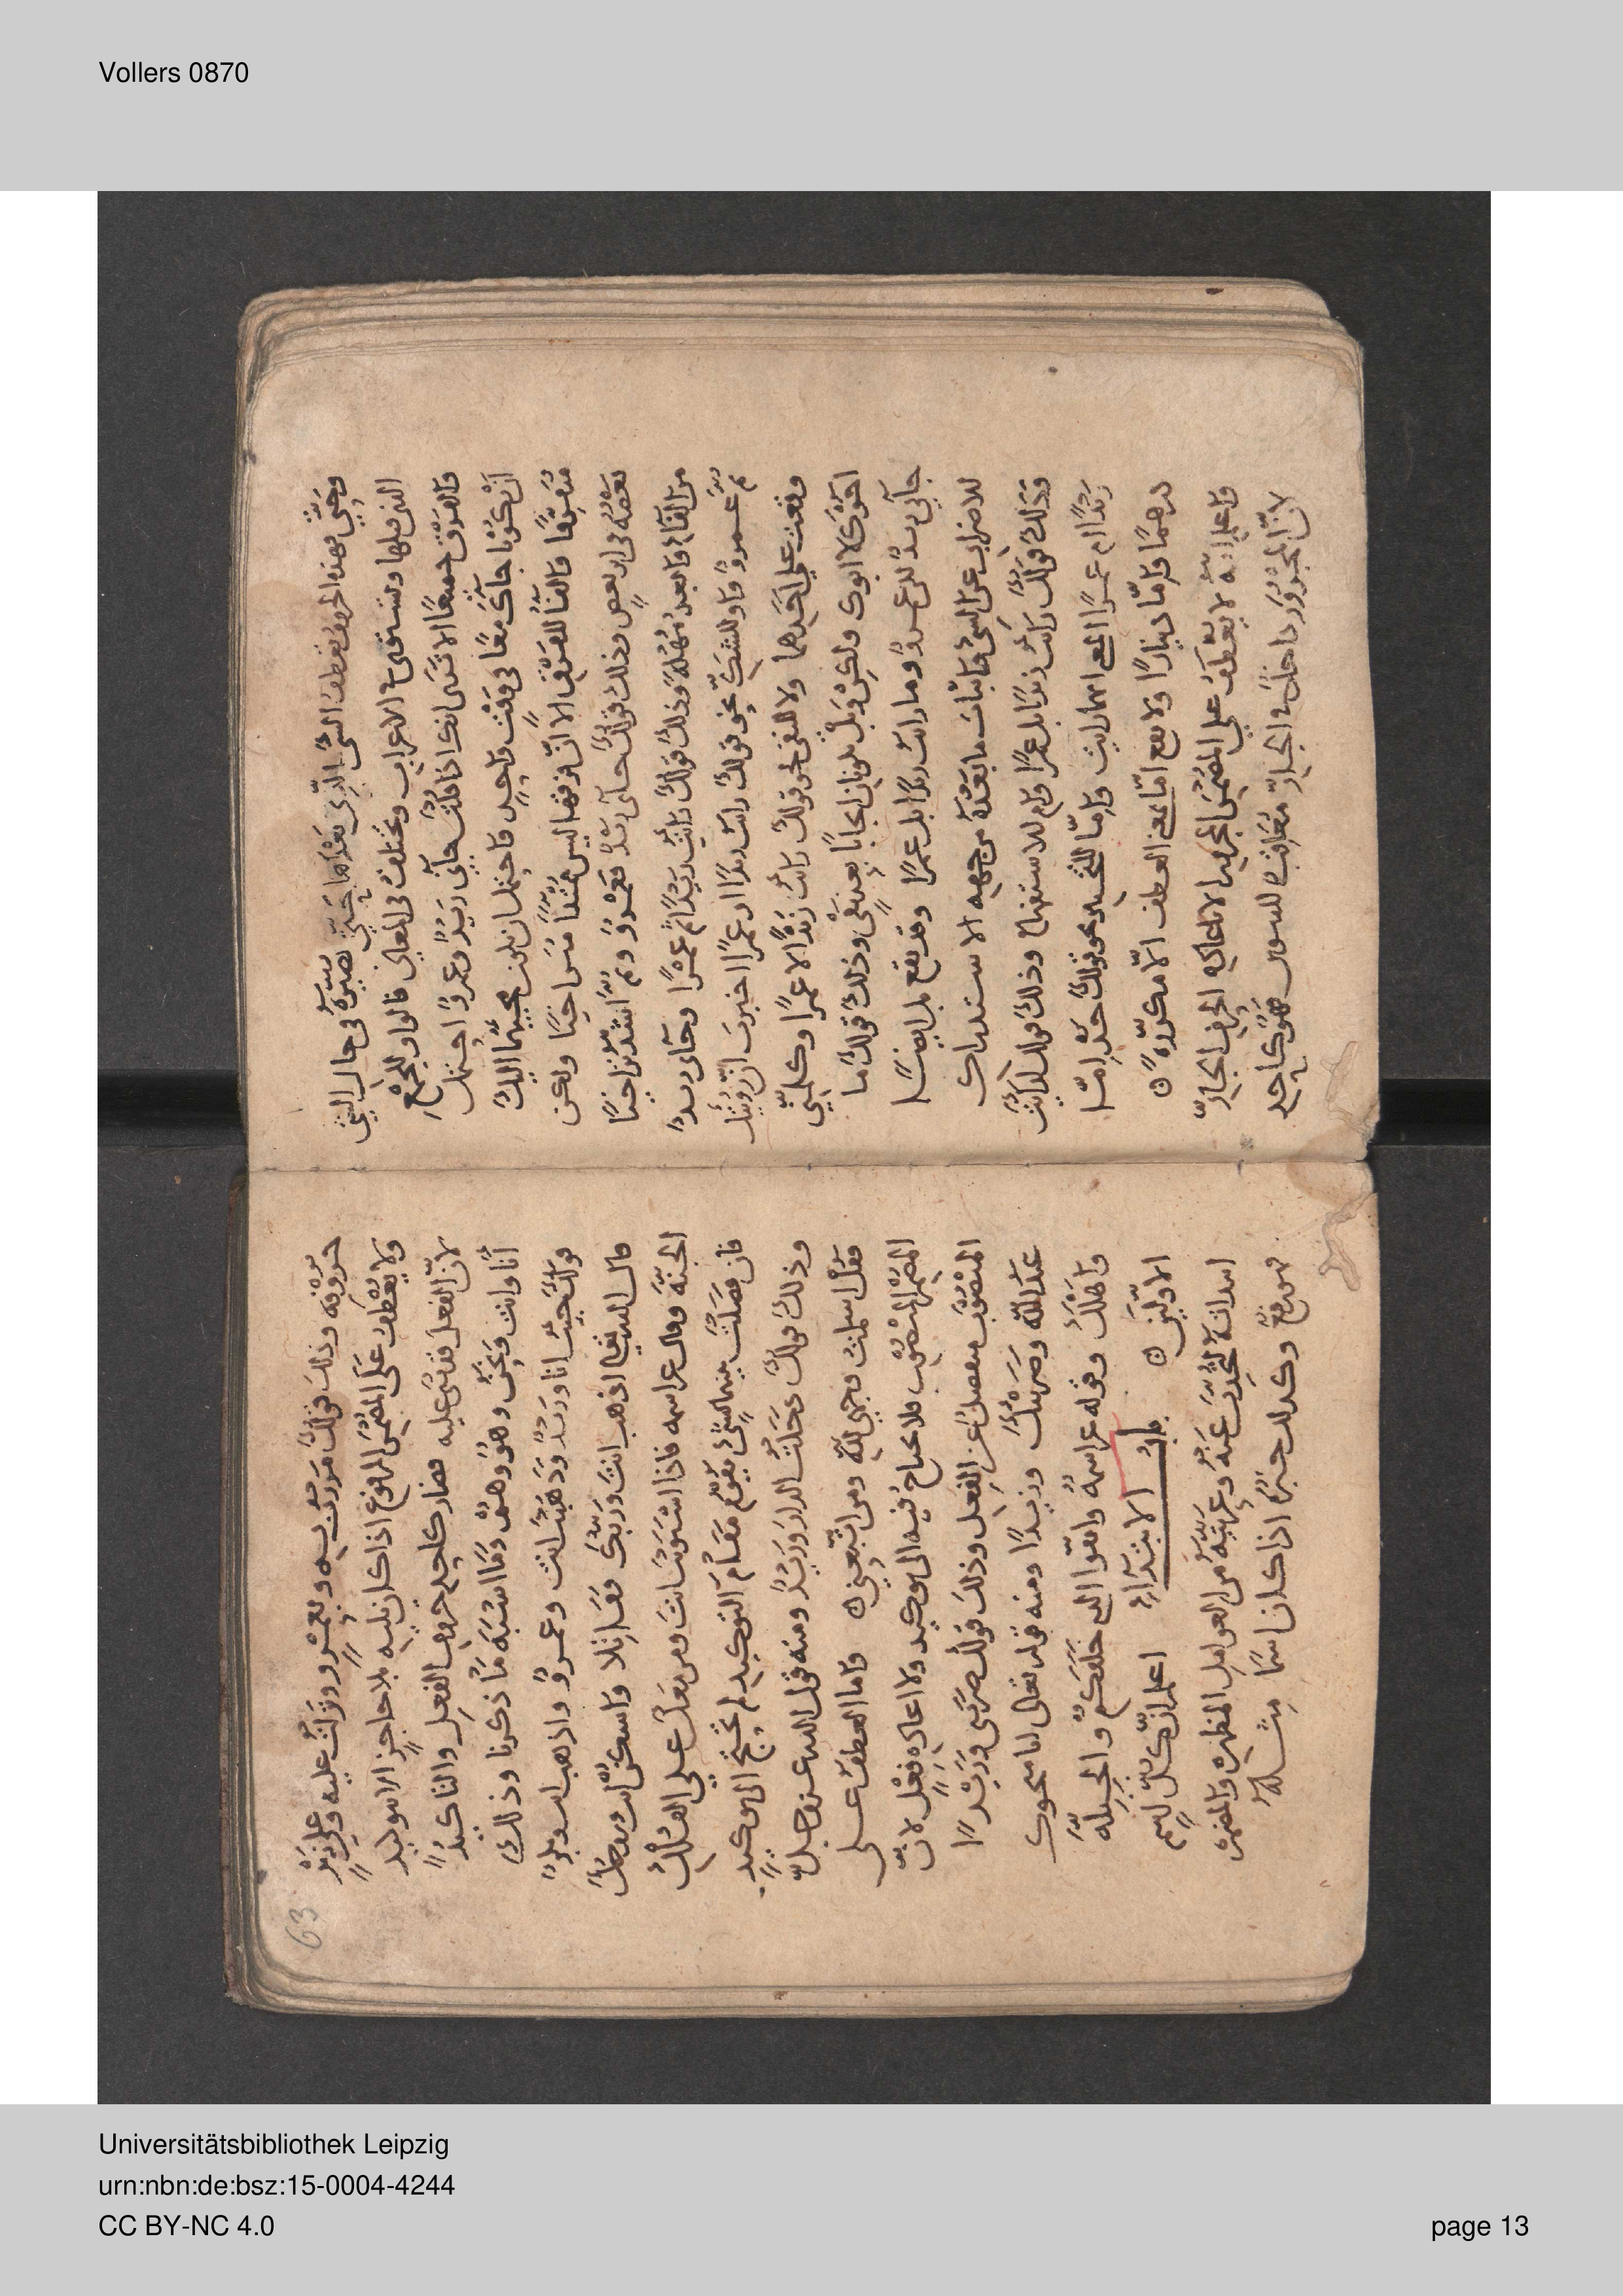 Vollers 0870
وهي بهذه الحروف يعطف الشي الذي بعدها حتى تصيره في حال الشي
الذي قبلها وتستوي في الاعراب وتختلف في المعاني فالواو للجمع
والفرق جميعًا الا ترى انك اذا قلت جاني زيدٌ وعمروٌ احتمل
ان يكونا جاك معًا في وقت واحدٍ واحتمل ان يكون مجيئهما اليك
متفرقًا والفا للفرق الا انّ فيها ليس مُتراخيًا ولكن
بعضه في اثر بعض وذلك قولك جاني زيدٌ فعمروٌ وثمّ اشد تراخيًا
من الفا وما بعد مُهلة وذلك قولك رايت زيدًا ثم عمرًا وجاني زيدٌ
ثم عمروٌ واو للشك نحو قولك رايت زيدًا او عمرًا اخبرت ان رويتك
وقعت على احدهما ولا للنفي نحو قولك رايت زيدًا لا عمرًا وكلمني
اخوك لا ابوك ولكن وبل يكونان ايجابًا بعد نفي وذلك قولك ما
جاني زيدٌ لكن عمروٌ وما رايت زيدًا بل عمرًا وقد يقع بل ايضًا
للاضراب عن الشي واثبات ما بعده من جهه الاستدراك
وذلك قولك رايت زيدًا بل عمرًا وام للاستفهام وذلك قولك ارايت
زيدًا ام عمرًا المعنى ايهما رايت وامّا للتخيير نحو قولك خذ امّا
درهمًا وامّا دينارًا ولا يقع امّا بمعنى العطف الّا مكرّره
واعلم انه لا يُعطف على المضمر المجرور الا باعاده الحرف الجارّ
لانّ المجرور داخلٌ في الجارّ معاقب للتنوين فهو كاحد
63
حروفه وذلك قولك مررت به وبعمرو ونزلت عليه وعلى زيدٍ
ولا يُعطف على المضمر المرفوع اذا كان يليه بلا حاجزٍ الا بتوكيد
لانّ الفعل بُني عليه فصار كاحد حروف الفعل والتاكيدُ
انا وانت ونحن وهو وهم وما اشبه ما ذكرنا وذلك
قولك جيت انا وزيدٌ وذهبت انت وعمروٌ واذهب انت وبكرٌ
قال الله تعالى اذهب انت وربك فقاتلا واسكن انت وزوجك
الجنة وقال عز اسمه فاذا استويت انت ومن معك على الفلك
فان فصلت بينهما بشي يقوم مقام التوكيد لم تحتج الى توكيد
وذلك قولك دخلت الدار وزيدٌ ومنه قول الله عز وجلّ
فقل اسلمت وجهي لله ومن اتبعني واما العطف على
المضمر المنصوب فلا تحتاج فيه الى توكيد ولا اعاده فعل لانّ
المنصوب منفصل عن الفعل وذلك قولك ضربني وزيدًا
عبد الله وضربتك وزيدًا ومنه قوله تعالى انا منجوك
واهلك وقوله عز اسمه واتقوا الذي خلقكم والجبلّة
الاولين باب الابتداء اعلم ان كل اسم
ابتداته لتحدث عنه وعرّيته من العوامل المظهره والمضمره
فهو رفعٌ وكذلك خبره اذا كان اسمًا مثله
Universitätsbibliothek Leipzig
urn:nbn:de:bsz:15-0004-4244
CC BY-NC 4.0
page 13